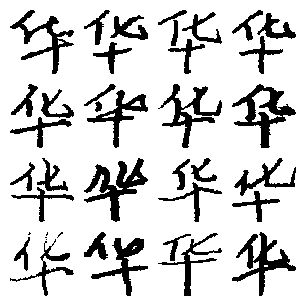 华华华华
华华华华
华华华华
华华华华